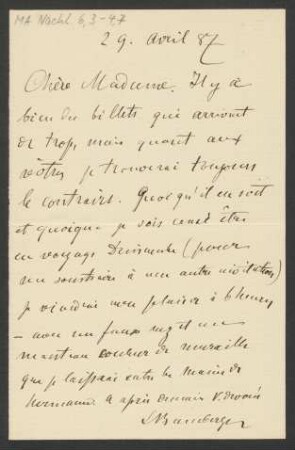 MA Nachl. 6,3-47
29. Avril 87
Chère Madame. Il y a
bien des billets qui arrivent
de trop, mais quant aux
vôtres je trouverai toujours
le contraire. Quoiqu'il en soit
et quoique je sois censé être
en voyage Dimanche (pour
me soustraire à une autre invitation)
je viendrai avec plaisir à 6 heures
– avec un faux nez et un
manteau couleur de muraille
que je laisserai entre les mains de
Hermann. A après demain v. dévoué
LBamberger